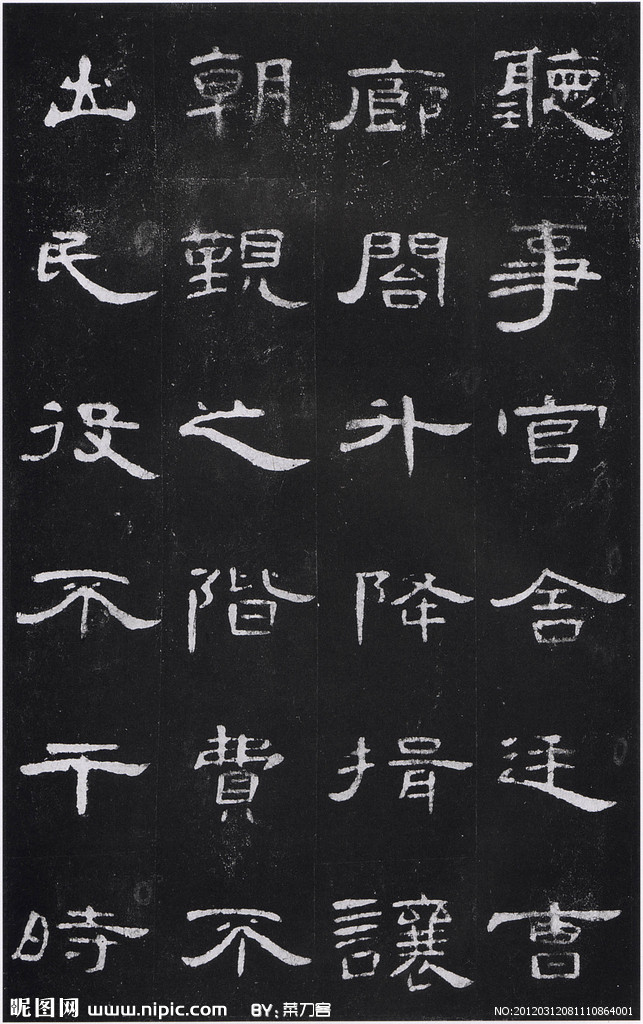 聽事官舍廷曹
廊閤升降揖讓
朝覲之階費不
出民役不干時
昵图网 www.nipic.com BY:菜刀客 NO:20120312081110864001